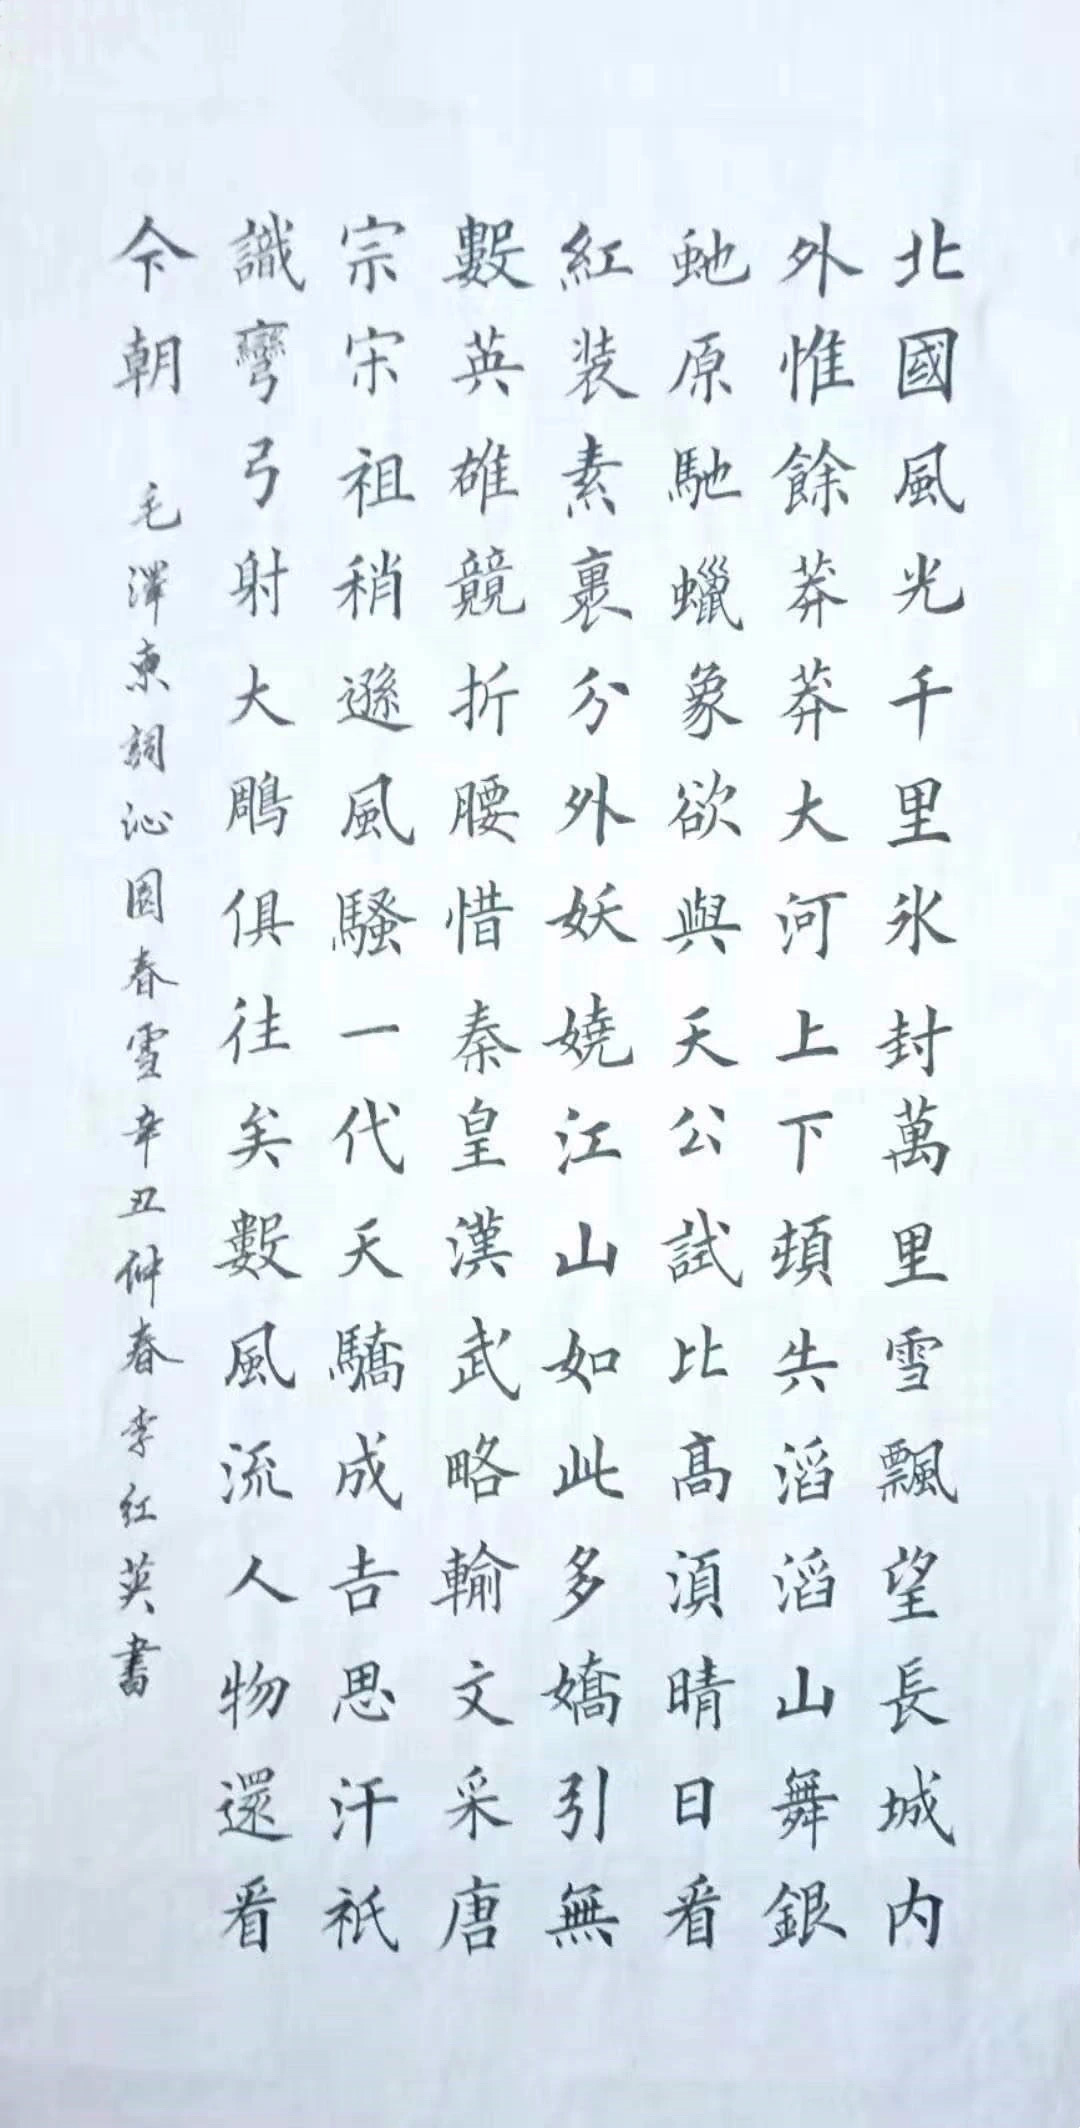 北國風光千里氷封萬里雪飄望長城内
外惟餘莽莽大河上下頓失滔滔山舞銀
虵原馳蠟象欲與天公試比高湏晴日看
紅装素裹分外妖嬈江山如此多嬌引無
數英雄競折腰惜秦皇漢武略輸文采唐
宗宋祖稍遜風騷一代天驕成吉思汗衹
識彎弓射大鵰俱往矣數風流人物還看
今朝
毛澤東詞沁園春雪辛丑仲春李红英書